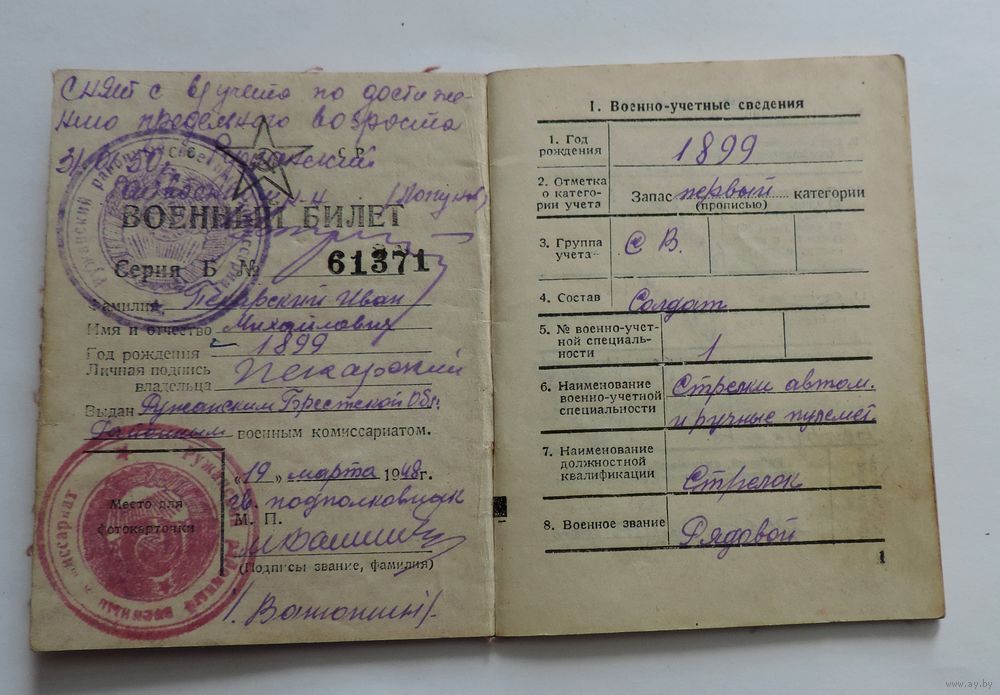 Снят с в/учета по достиже-
нию предельного возраста
ВОЕННЫЙ БИЛЕТ
Серия Б № 61371
Фамилия Пекарский Иван
Имя и отчество Михайлович
Год рождения 1899
Личная подпись
владельца Пекарский
Выдан Ружанским Брестской обл.
Районным военным комиссариатом.
Место для
фотокарточки
„19„ марта 1948г.
гв. подполковник
М. П.
(Подписы звание, фамилия)
I. Военно-учетные сведения
1. Год
рождения 1899
2. Отметка
о катего-
рии учета Запас первый категории
(прописью)
3. Группа
учета С В.
4. Состав Солдат
5. № военно-учет-
ной специаль-
ности 1
6. Наименование
военно-учетной
специальности Стрелки автом.
и ручные пулемет.
7. Наименование
должностной
квалификации Стрелок
8. Военное звание Рядовой
1
www.ay.by